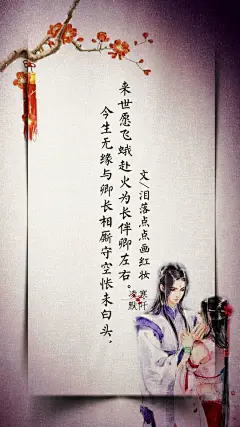 今生无缘与卿长相厮守空怅未白头，
来世愿飞蛾赴火为长伴卿左右。
文/泪落点点画红妆